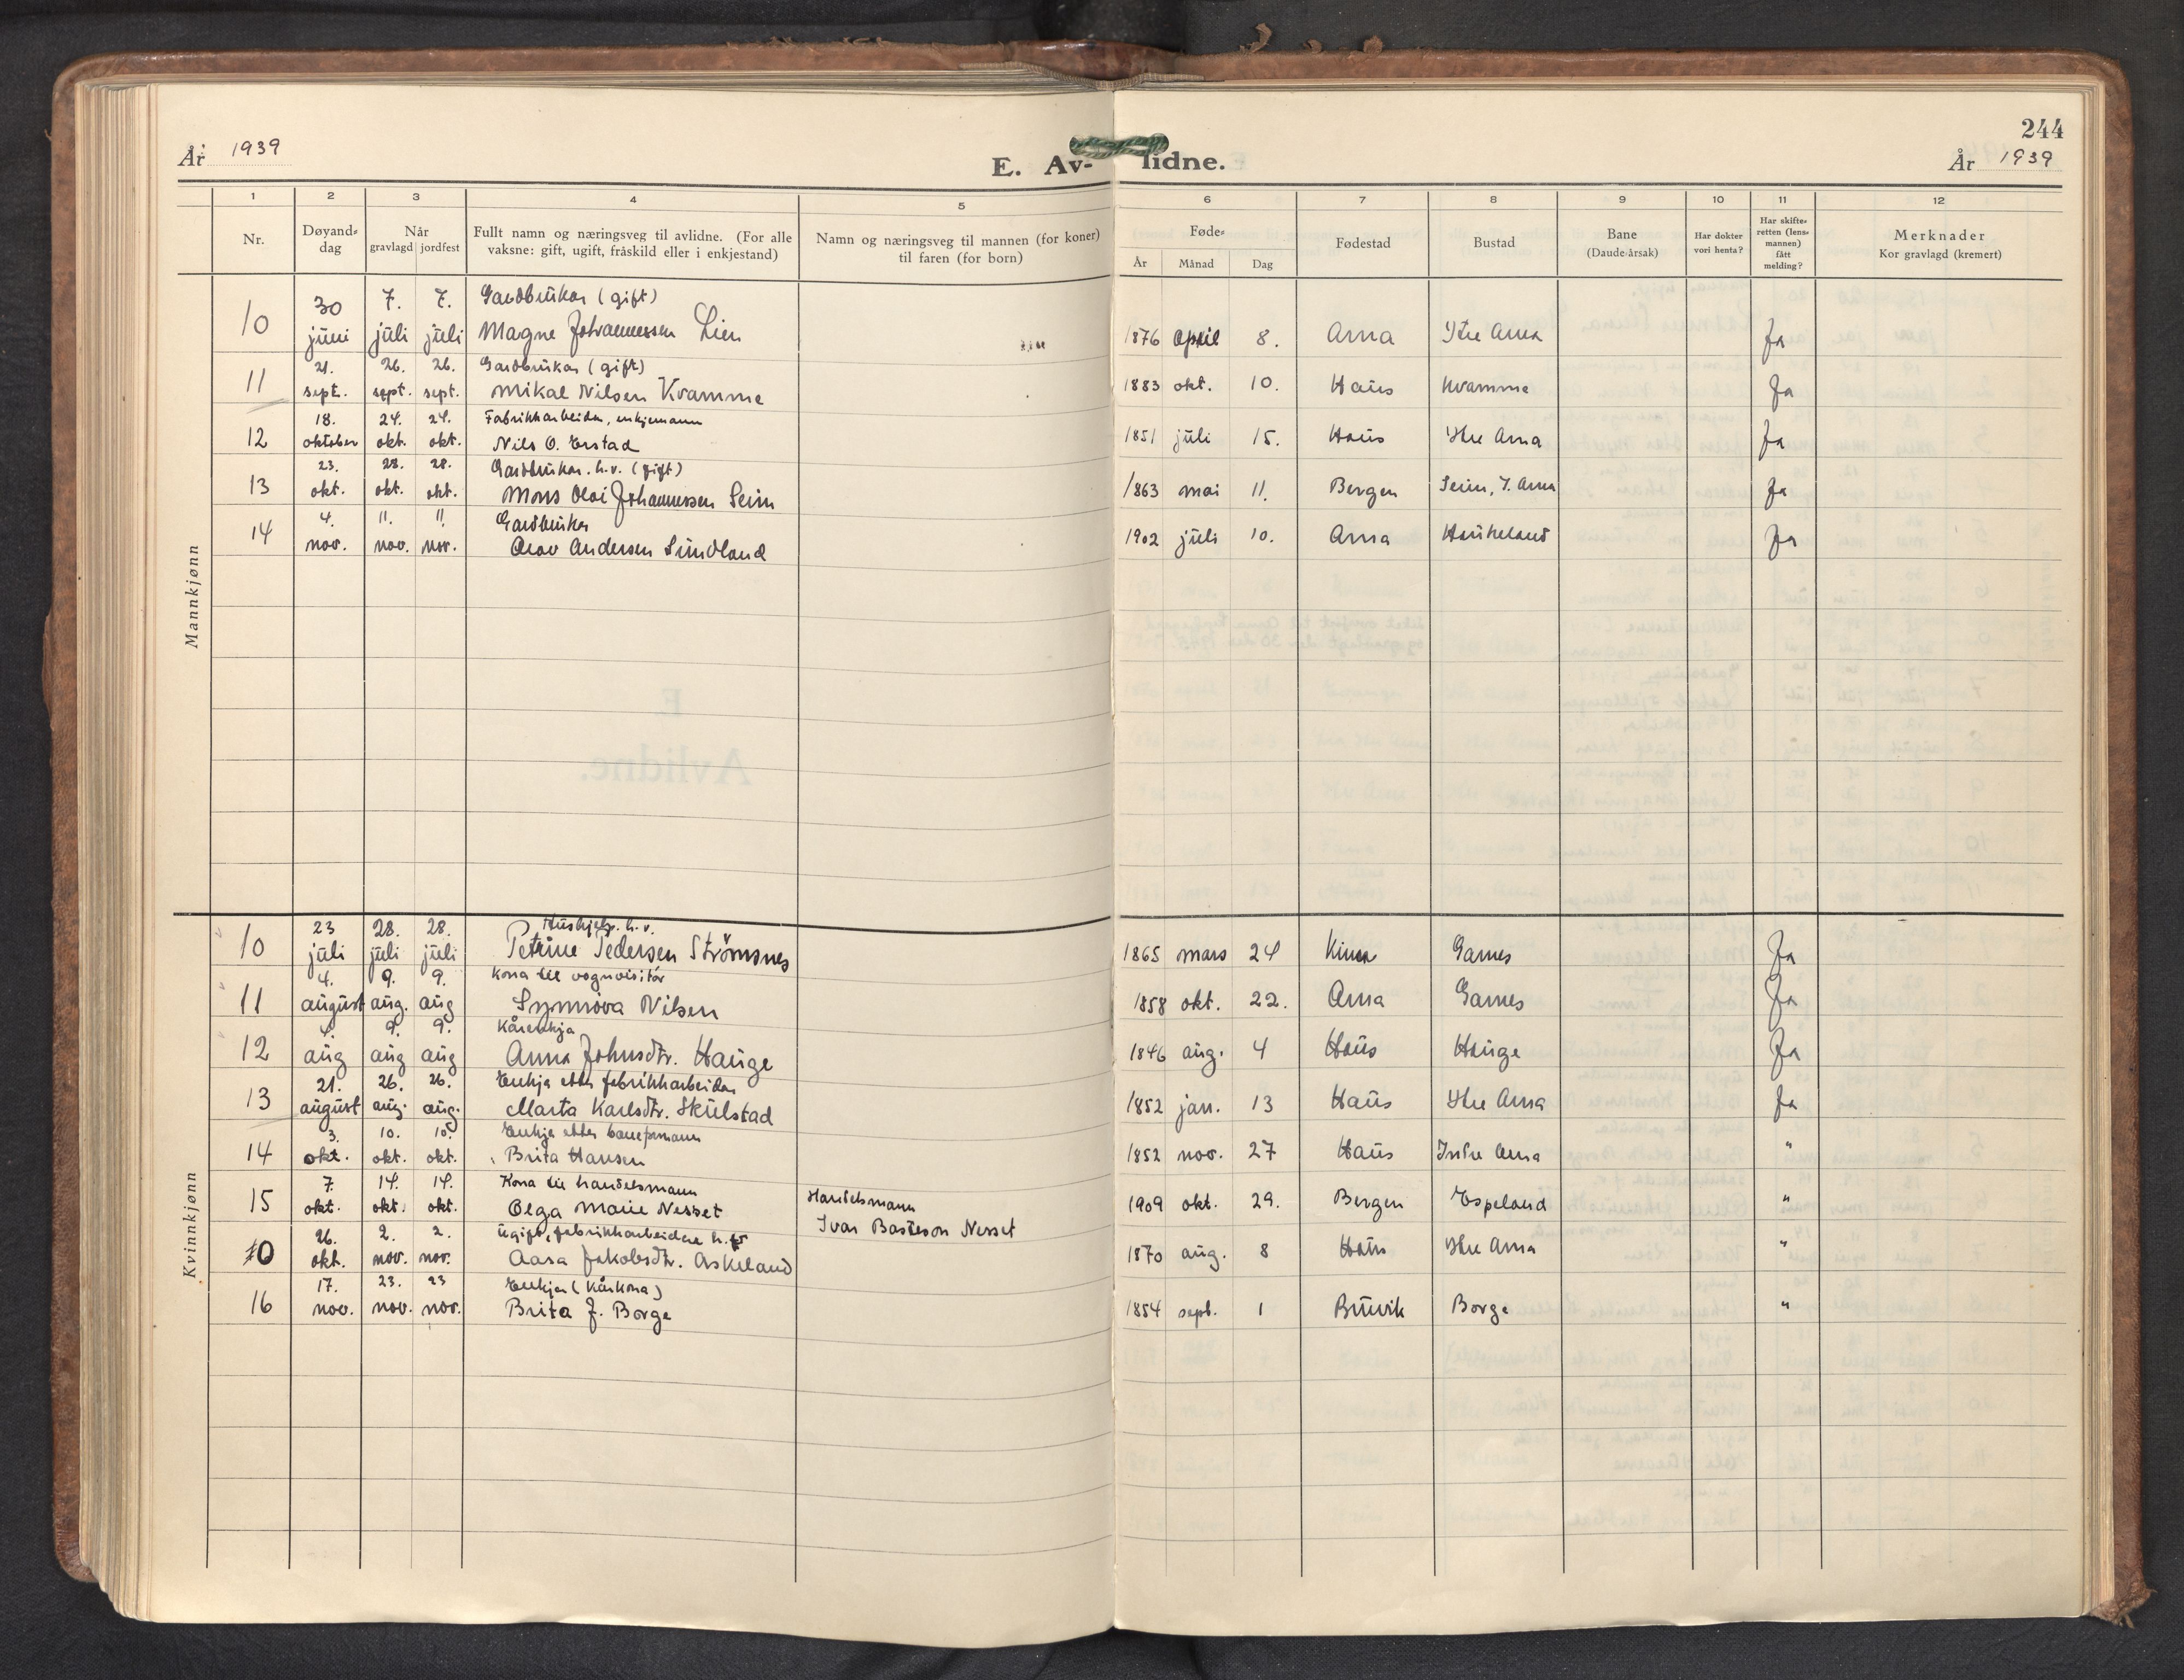 244
År 1939
E. Av-lidne.
År 1939
1 2 3 4 5 6 7 8 9 10 11 12
Nr.
Døyand-dag
Når
gravlagd jordfest
Fullt namn og næringsveg til avlidne. (For alle
vaksne: gift, ugift, fråskild eller i enkjestand)
Namn og næringsveg til mannen (for koner)
til faren (for born)
Føde-
År Månad Dag
Fødestad
Bustad
Bane
(Daude-årsak)
Har dokter
vori henta?
Har skifte-
retten (lens-
mannen)
fått
melding?
Merknader
Kor gravlagd (kremert)
Mannkjønn
30 7. 7. Gardbrukar (gift)
10 juni juli juli Magne Johannessen Lien 1876 april 8. Arna Ytre Arna Ja
21. 26. 26. Gardbrukar (gift)
11 sept. sept. sept. Mikal Nilsen Kvamme 1883 okt. 10. Haus Kvamme Ja
18. 24. 24. Fabrikkarbeidar, enkjemann
12 oktober okt. okt. Nils O. Erstad 1851 juli 15. Haus Ytre Arna Ja
23. 28. 28. Gardbrukar. h.v. (gift)
13 okt. okt. okt. Mons Olai Johannessen Seim 1863 mai 11. Bergen Seim, Y. Arna Ja
4. 11. 11. Gardbrukar
14 nov. nov. nov. Olav Andersen Sundland 1902 juli 10. Arna Haukeland Ja
Kvinnkjønn
23 28. 28. Hushjelp. h.v.
10 juli juli juli Petrine Pedersen Strömsnes 1865 mars 24 Kinn Garnes Ja
4. 9. 9. Kona til vognvisitör
11 august aug. aug Synnöva Nilsen 1858 okt. 22. Arna Garnes Ja
4. 9. 9. Kårenkja
12 aug aug aug Anna Johnsdtr. Hauge 1846 aug. 4 Haus Hauge Ja
21. 26. 26. Enkja etter fabrikkarbeidar
13 august aug. aug. Marta Karlsdtr. Skulstad 1852 jan. 13 Haus Ytre Arna Ja
3. 10. 10. Enkja etter baneformann
14 okt. okt. okt. Brita Hansen 1852 nov. 27 Haus Indre Arna "
7. 14. 14. Kona til handelsmann Handelsmann
15 okt. okt. okt. Olga Marie Nesset Ivar Basteson Nesset 1909 okt. 29. Bergen Espeland "
26. 2. 2. Ugift, fabrikkarbeidar h.v.
10 okt. nov. nov. Aasa Jakobsdtr. Askeland 1870 aug. 8 Haus Ytre Arna "
17. 23. 23 Enkja (Kårkona)
16 nov. nov. nov. Brita J. Borge 1854 sept. 1 Bruvik Borge "